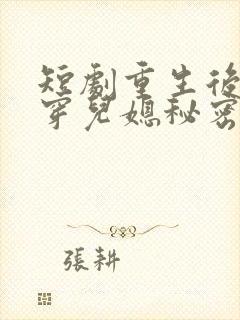 短劇重生後
穿兒媳秘密
張耕